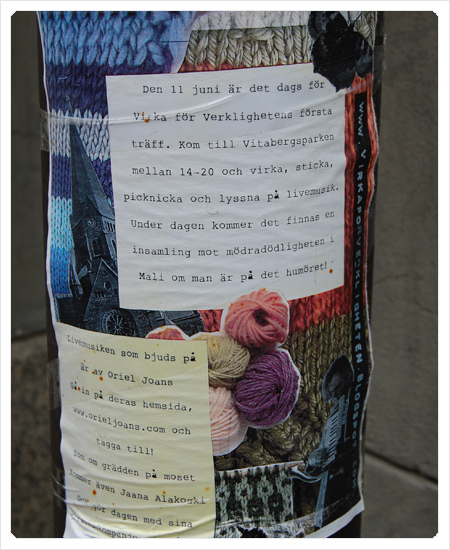 Den 11 juni är det dags för
Virka för Verklighetens första
träff. Kom till Vitabergsparken
mellan 14-20 och virka, sticka,
picknicka och lyssna på livemusik.
Under dagen kommer det finnas en
insamling mot mödradödligheten i
Mali om man är på det humöret!
www.VIRKAFORVERKLIGHETEN.BLOGSPO
Livemusiken som bjuds på
är av Oriel Joans
Gå in på deras hemsida,
www.orieljoans.com och
tagga till!
Som om grädden på moset
Kommer även Jaana Alakoski
gör dagen med sina